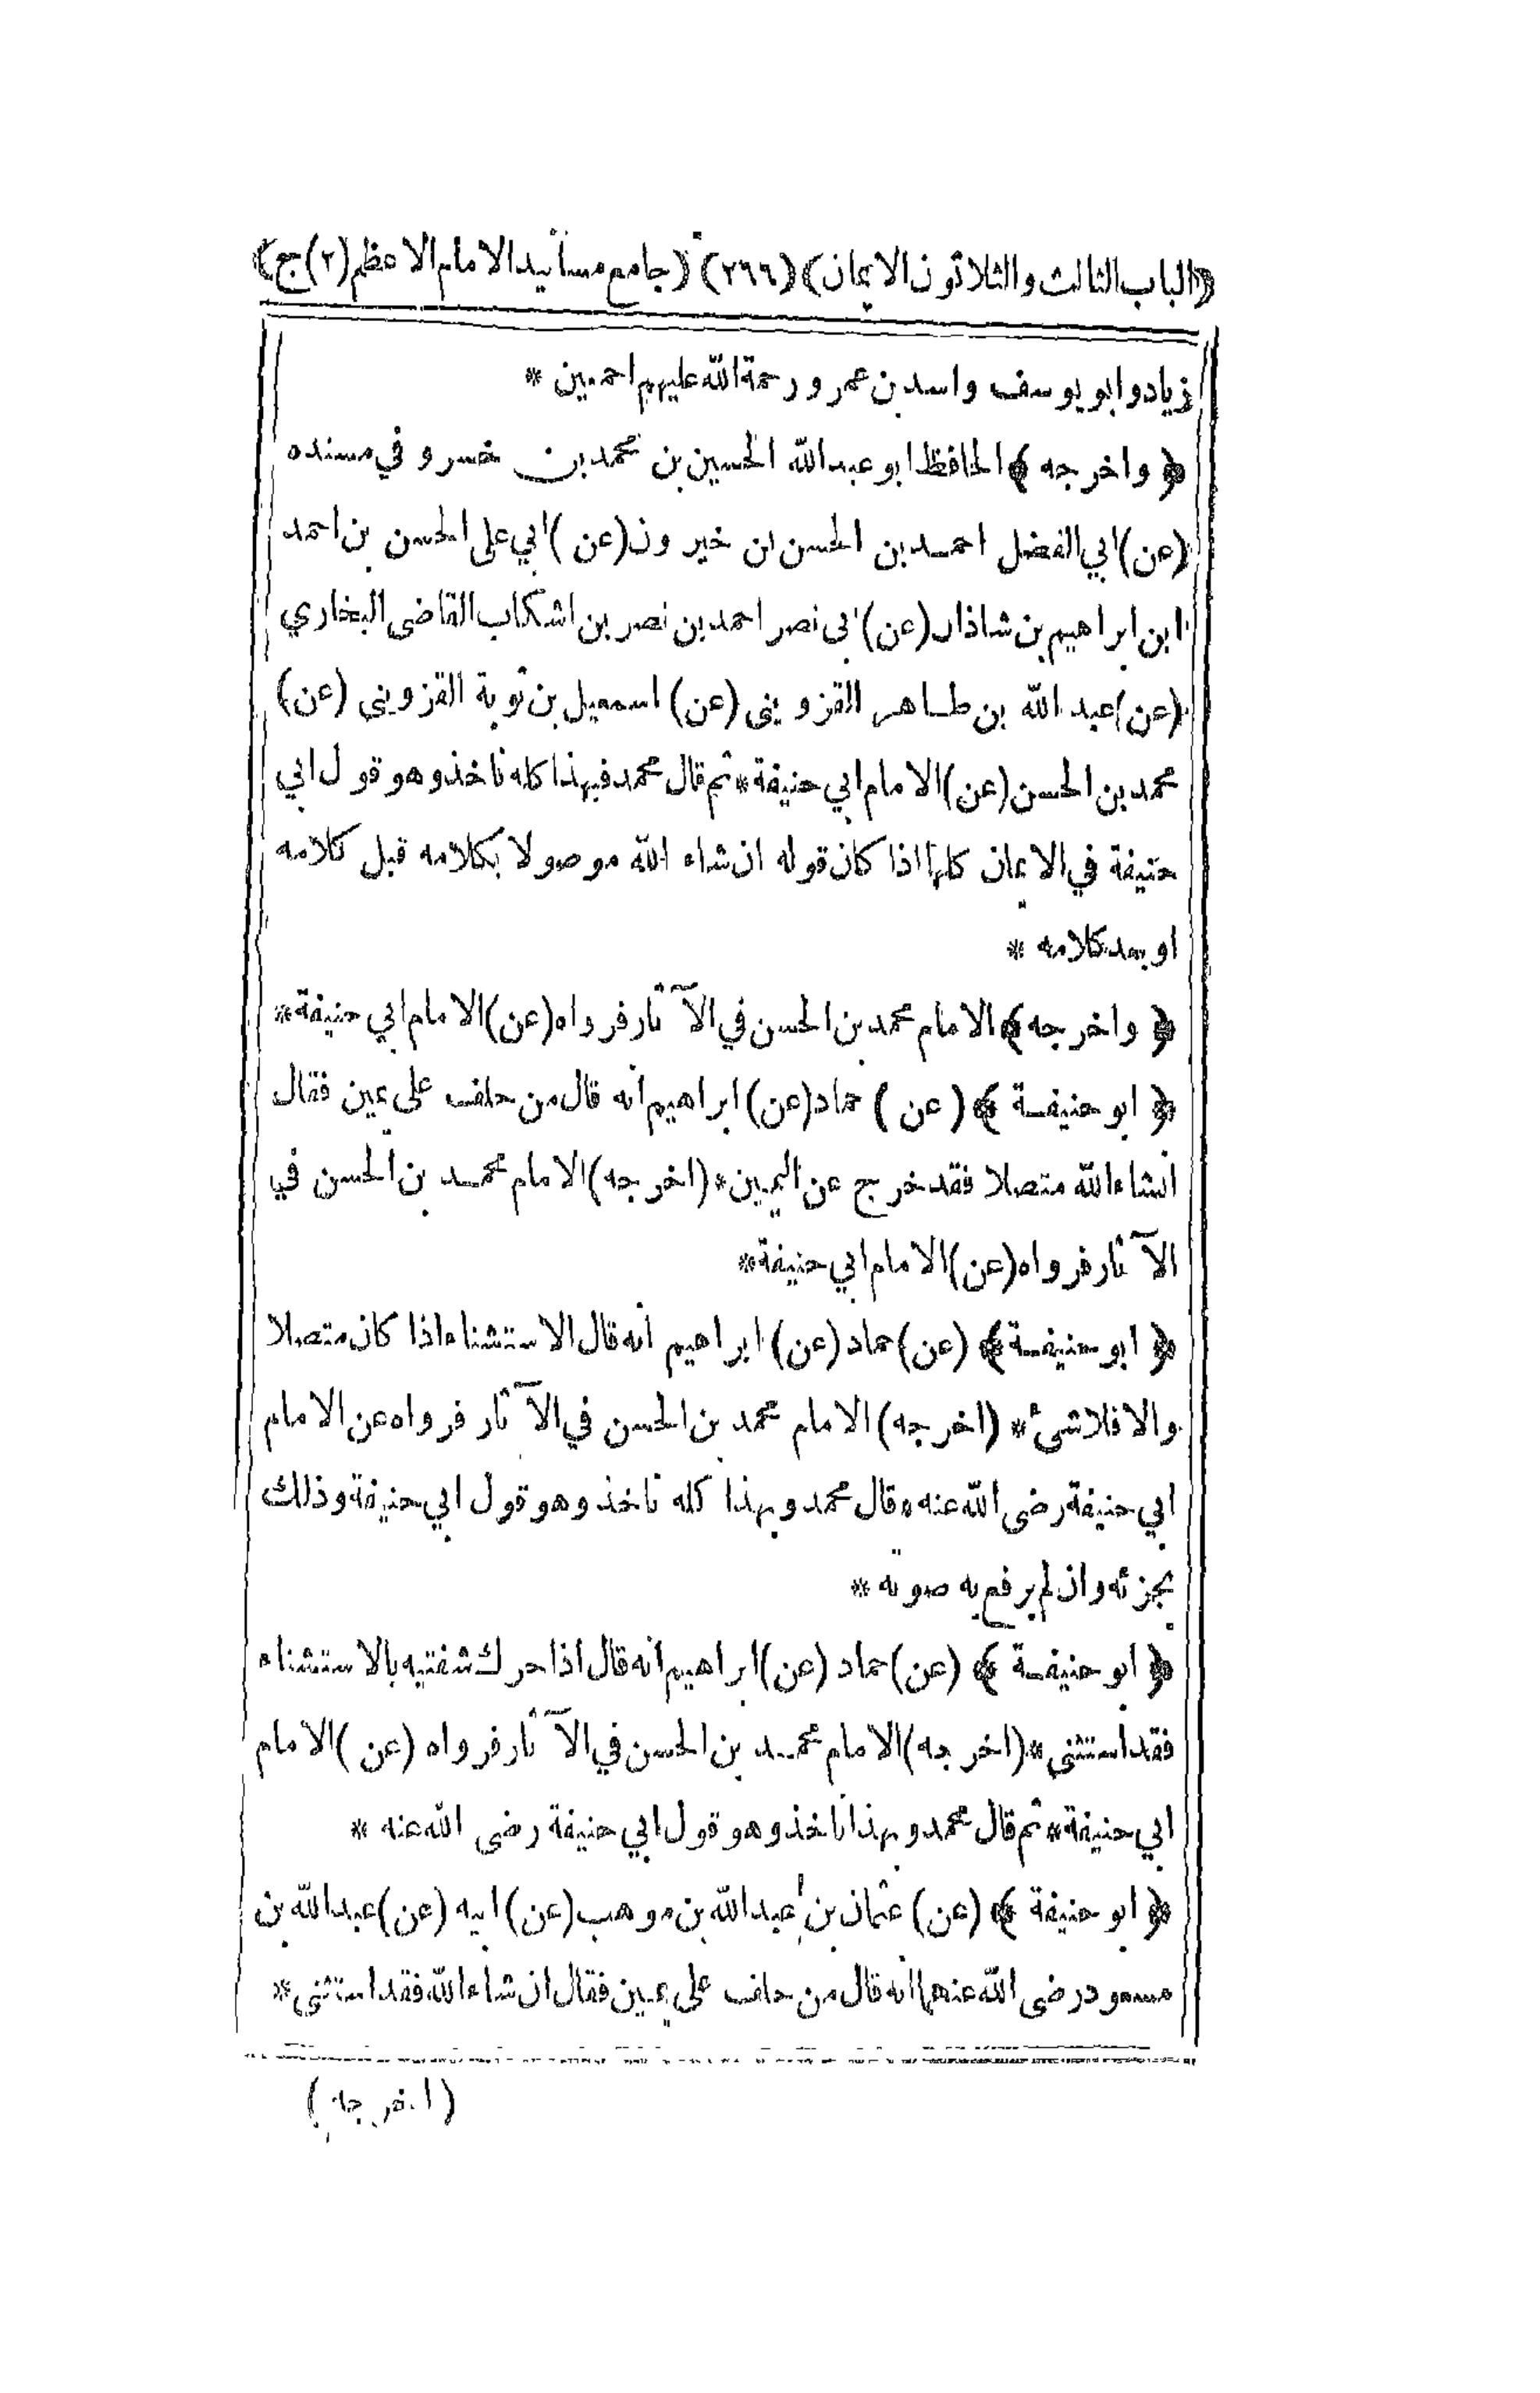 ﴿الباب الثالث والثلاثون الايمان﴾ (٢٦٦) ﴿جامع مسانيد الامام الاعظم (٢) ج﴾
زياد وابو يوسف واسد بن عمرو رحمة الله عليهم اجمعين *
﴿ واخرجه ﴾ الحافظ ابو عبد الله الحسين بن محمد بن خسرو في مسنده
(عن) ابي الفضل احمد بن الحسن ابن خيرون (عن) ابي على الحسن بن احمد
ابن ابراهيم بن شاذان (عن) ابى نصر احمد بن نصر بن اشكاب القاضى البخاري
(عن) عبد الله بن طاهر القزوينى (عن) اسمعيل بن توبة القزوينى (عن)
محمد بن الحسن (عن) الامام ابي حنيفة * ثم قال محمد فبهذا كله ناخذ وهو قول ابي
حنيفة في الايمان كلها اذا كان قوله ان شاء الله موصولا بكلامه قبل كلامه
او بعد كلامه *
﴿ واخرجه ﴾ الامام محمد بن الحسن في الآثار فرواه (عن) الامام ابي حنيفة *
﴿ ابو حنيفة ﴾ (عن) حماد (عن) ابراهيم انه قال من حلف على يمين فقال
انشاء الله متصلا فقد خرج عن اليمين * (اخرجه) الامام محمد بن الحسن في
الآثار فرواه (عن) الامام ابي حنيفة *
﴿ ابو حنيفة ﴾ (عن) حماد (عن) ابراهيم انه قال الاستثناء اذا كان متصلا
والا فلا شئ * (اخرجه) الامام محمد بن الحسن في الآثار فرواه عن الامام
ابي حنيفة رضى الله عنه * قال محمد وبهذا كله ناخذ وهو قول ابي حنيفة وذلك
يجزئه وان لم يرفع به صوته *
﴿ ابو حنيفة ﴾ (عن) حماد (عن) ابراهيم انه قال اذا حرك شفتيه بالاستثناء
فقد استثنى * (اخرجه) الامام محمد بن الحسن في الآثار فرواه (عن) الامام
ابي حنيفة * ثم قال محمد وبهذا ناخذ وهو قول ابي حنيفة رضى الله عنه *
﴿ ابو حنيفة ﴾ (عن) عثمان بن عبد الله بن موهب (عن) ابيه (عن) عبد الله بن
مسعود رضى الله عنهما انه قال من حلف على يمين فقال ان شاء الله فقد استثنى *
(اخرجه)